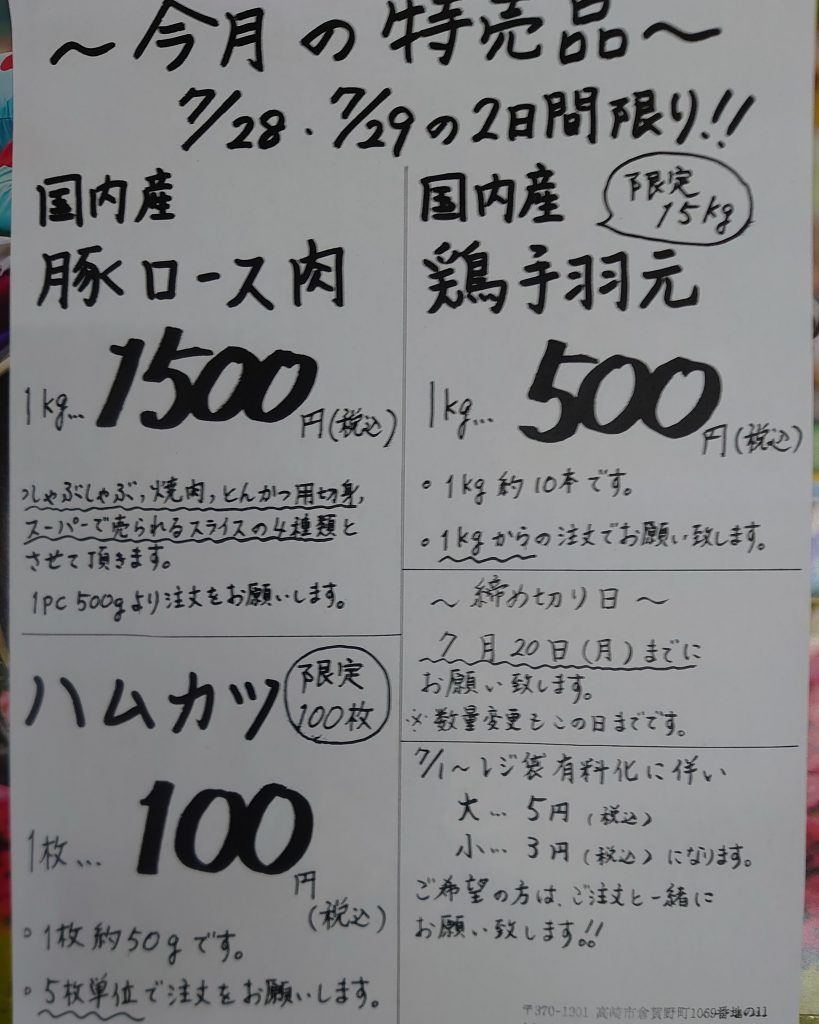 ～今月の特売品～
7/28・7/29の2日間限り!!
国内産
豚ロース肉
1kg… 1500円(税込)
・しゃぶしゃぶ,焼肉,とんかつ用切身,
スーパーで売られるスライスの4種類と
させて頂きます。
1PC 500gより注文をお願いします。
国内産
限定
15kg
鶏手羽元
1kg… 500円(税込)
・1kg 約10本です。
・1kgからの注文でお願い致します。
～締め切り日～
7月20日(月)までに
お願い致します。
※数量変更もこの日までです。
ハムカツ
限定
100枚
1枚… 100円
(税込)
・1枚約50gです。
・5枚単位で注文をお願いします。
7/1～レジ袋有料化に伴い
大… 5円(税込)
小… 3円(税込)になります。
ご希望の方は、ご注文と一緒に
お願い致します!!
〒370-1301 高崎市倉賀野町1069番地の11